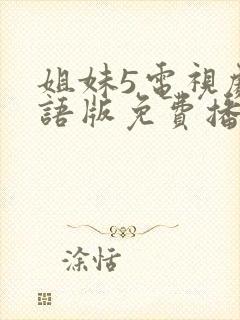 姐妹5電視
語版免費播
涂恬